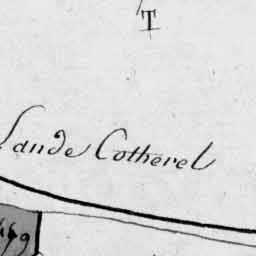 T
Lande Cotherel